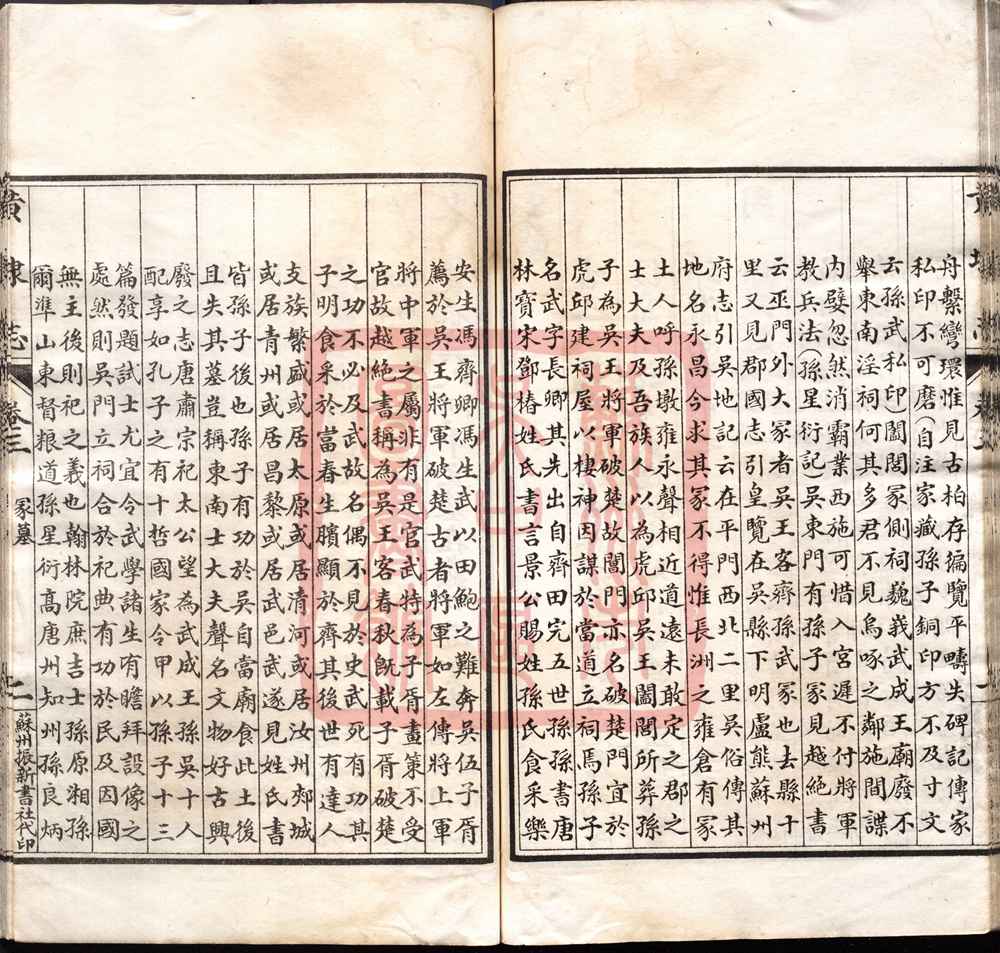 舟繫彎環惟見古柏存編覽平疇失碑記傳家
私印不可磨(自注家藏孫子銅印方不及寸文
云孫武私印)闔閭冢側祠巍峩武成王廟廢不
舉東南淫祠何其多君不見烏啄之鄰施間諜
内嬖忽然消霸業西施可惜入宮遲不付將軍
教兵法(孫星衍記)吳東門有孫子冢見越絶書
云巫門外大冢者吳王客齊孫武冢也去縣十
里又見郡國志引皇覽在吳縣下明盧熊蘇州
府志引吳地記云在平門西北二里吳俗傳其
地名永昌今求其冢不得惟長洲之雍倉有冢
土人呼孫墩雍永聲相近道遠未敢定之郡之
士大夫及吾族人以為虎邱吳王闔閭所葬孫
子為吳王將軍破楚故閶門亦名破楚門宜於
虎邱建祠屋以棲神因謀於當道立祠焉孫子
名武字長卿其先出自齊田完五世孫孫書唐
林寶宋鄧椿姓氏書言景公賜姓孫氏食采樂
安生馮齊卿馮生武以田鮑之難奔吳伍子胥
薦於吳王將軍破楚古者將軍如左傳將上軍
將中軍之屬非有是官武特為子胥畫策不受
官故越絶書稱為吳王客春秋旣載子胥破楚
之功不必及武故名偶不見於史武死有功其
子明食采於富春生臏顯於齊其後世有達人
支族繁盛或居太原或居清河或居汝州郟城
或居青州或居昌黎或居武邑武遂見姓氏書
皆孫子後也孫子有功於吳自當廟食此土後
且失其墓豈稱東南士大夫聲名文物好古興
廢之志唐肅宗祀太公望為武成王孫吳十人
配享如孔子之有十哲國家令甲以孫子十三
篇發題試士尤宜令武學諸生有瞻拜設像之
處然則吳門立祠合於祀典有功於民及因國
無主後則祀之義也翰林院庶吉士孫原湘孫
爾準山東督粮道孫星衍高唐州知州孫良炳
黄埭志 卷三 冢墓 二 蘇州振新書社代印